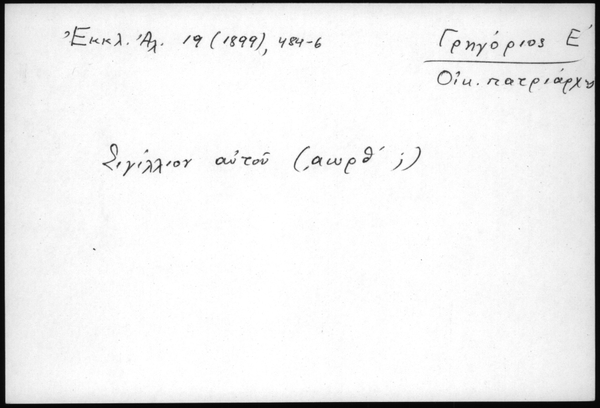 Ἐκκλ. Ἀλ. 19 (1899), 484-6
Γρηγόριος Ε´
Οἰκ. πατριάρχης
Σιγίλλιον αὐτοῦ (͵αωρθ´ ;)